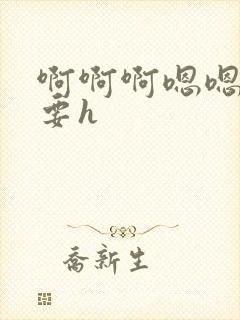 啊啊啊嗯嗯
要h
乔新生